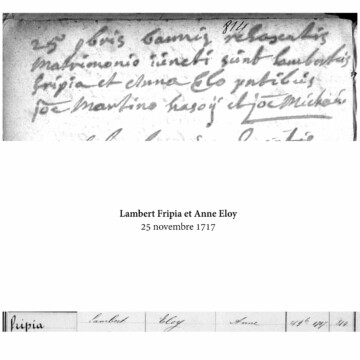 814
25 9bris bannis relaxatis
matrimonio iuncti sunt lambertus
fripia et Anna Elo pntibus
joe Martino hasoij et joe Michair
Lambert Fripia et Anne Eloy
25 novembre 1717
fripia Lambert Eloy Anne